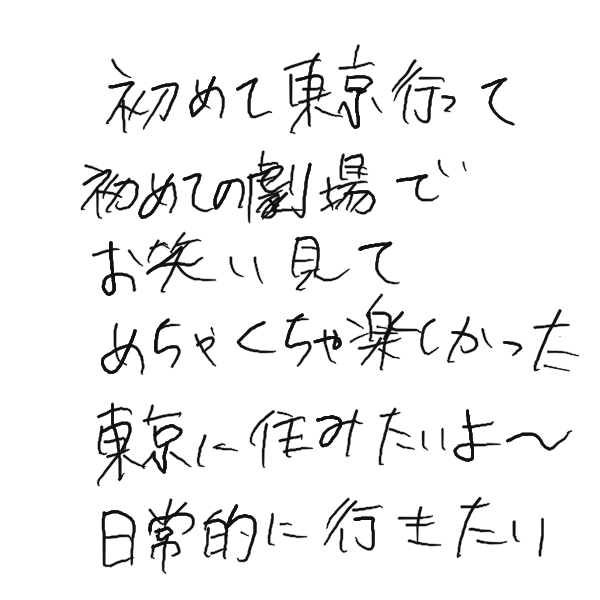 初めて東京行って
初めての劇場で
お笑い見て
めちゃくちゃ楽しかった
東京に住みたいよ〜
日常的に行きたい